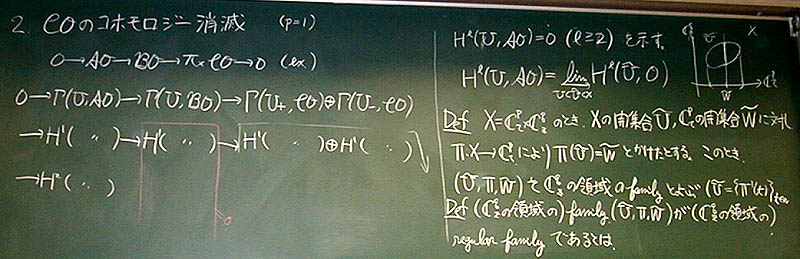 2. CO のコホモロジー消滅 (p=1)
0→AO→BO→π*CO→0 (ex)
0→Γ(U,AO)→Γ(U,BO)→Γ(U₊,CO)⊕Γ(U₋,CO)
→H¹( 〃 )→H¹( 〃 )→H¹( 〃 )⊕H¹( 〃 )
→H²( 〃 )
→0
Hˡ(U,AO)=0 (l≥2) を示す.
Hˡ(U,AO)=lim Hˡ(Ũ,O)
Def X= のとき, Xの開集合Ũ, の開集合W̃に対し
π:X→ により π(Ũ)=W̃ とかけたとする. このとき,
(Ũ,π,W̃)を の領域のfamilyとよぶ
Def ( の領域の) family (Ũ,π,W̃)が( の領域の)
regular family であるとは,
X
Ũ
W̃